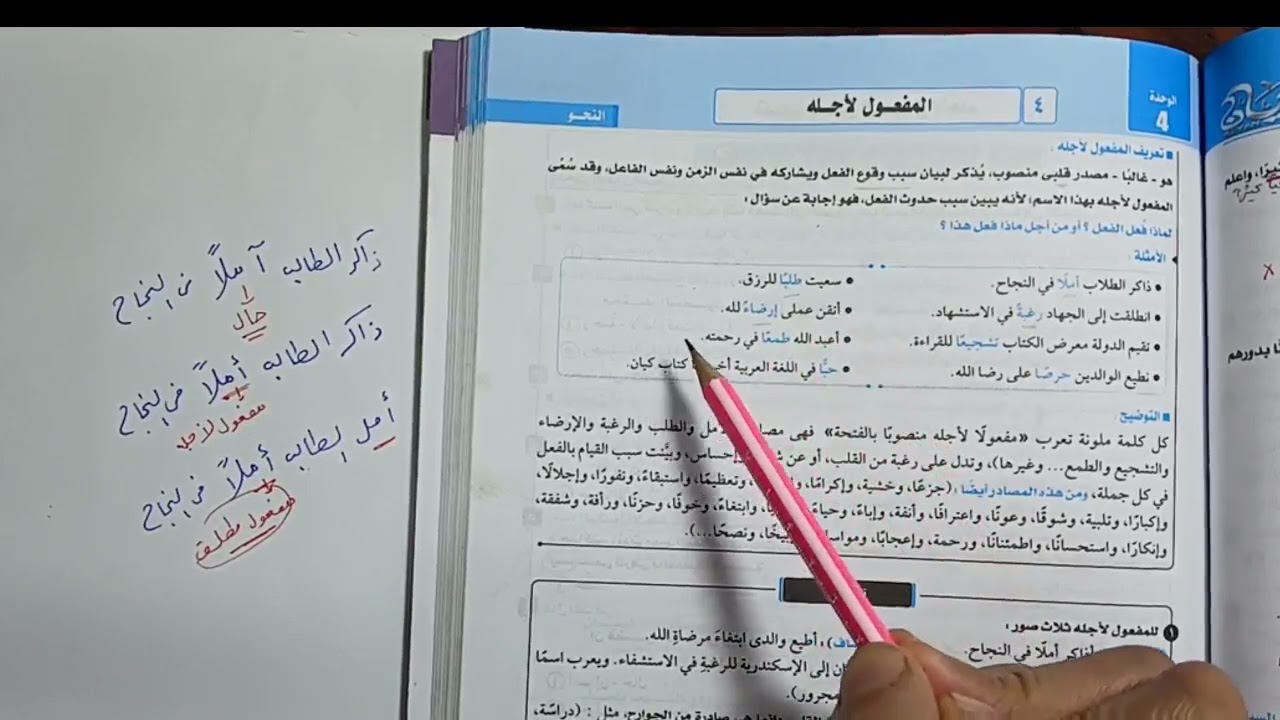 الوحدة
4
٤
المفعول لأجله
النحو
تعريف المفعول لأجله :
هو - غالبًا - مصدر قلبى منصوب، يُذكر لبيان سبب وقوع الفعل ويشاركه في نفس الزمن ونفس الفاعل، وقد سُمِّى
المفعول لأجله بهذا الاسم؛ لأنه يبين سبب حدوث الفعل، فهو إجابة عن سؤال :
لماذا فُعل الفعل ؟ أو من أجل ماذا فعل هذا ؟
الأمثلة :
• ذاكر الطلاب أملًا في النجاح.
• سعيت طلبًا للرزق.
• انطلقت إلى الجهاد رغبةً في الاستشهاد.
• أتقن عملى إرضاءً لله.
• تقيم الدولة معرض الكتاب تشجيعًا للقراءة.
• أعبد الله طمعًا في رحمته.
• نطيع الوالدين حرصًا على رضا الله.
• حبًّا في اللغة العربية كتاب كيان.
التوضيح
كل كلمة ملونة تعرب «مفعولًا لأجله منصوبًا بالفتحة» فهى والطلب والرغبة والإرضاء
والتشجيع والطمع... وغيرها)، وتدل على رغبة من القلب، أو عن إحساس، وبيَّنت سبب القيام بالفعل
في كل جملة، ومن هذه المصادر أيضًا : (جزعًا، وخشية، وإكرامًا، وتعظيمًا، واستبقاءً، ونفورًا، وإجلالًا،
وإكبارًا، وتلبية، وشوقًا، وعونًا، واعترافًا، وأنفة، وإباءً، وحياءً، وابتغاءً، وخوفًا، وحزنًا، ورأفة، وشفقة،
وإنكارًا، واستحسانًا، واطمئنانًا، ورحمة، وإعجابًا، ونصحًا...).
١ للمفعول لأجله ثلاث صور :
أذاكر أملًا في النجاح. : أطيع والدى ابتغاءَ مرضاةِ الله.
إلى الإسكندرية للرغبةِ في الاستشفاء. ويعرب اسمًا
مجرور).
صادرة من الجوارح، مثل : (دراسة،
ذاكر الطالب آملًا في النجاح
حال
ذاكر الطالب أملًا في النجاح
مفعول لأجله
أمل الطالب أملًا في النجاح
مفعول مطلق
واعلم
بدورهم